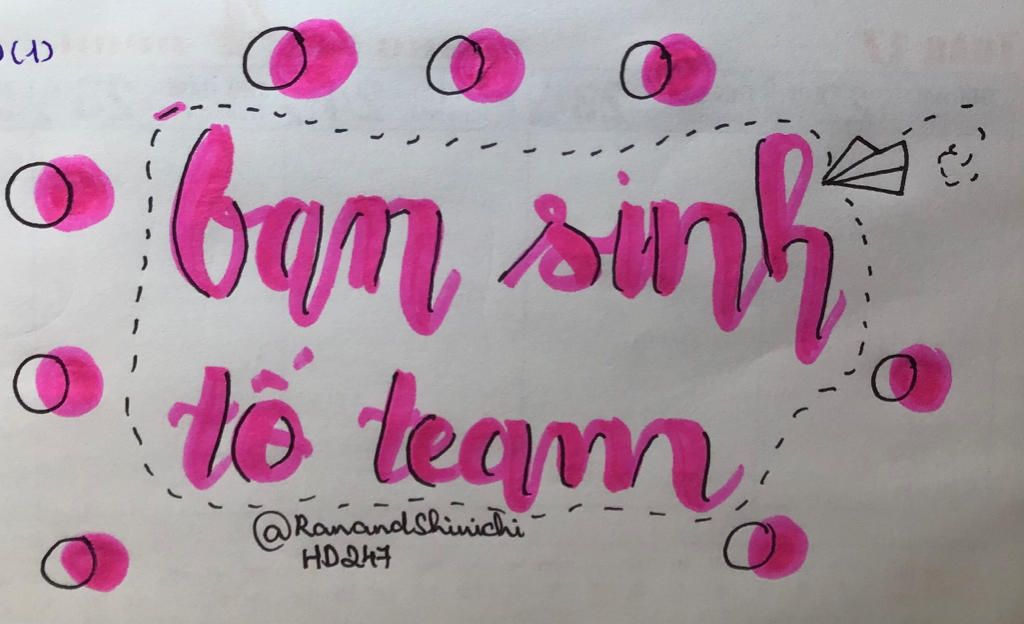 (1)
ban sinh
tố team
@RanandShinichi
HD247